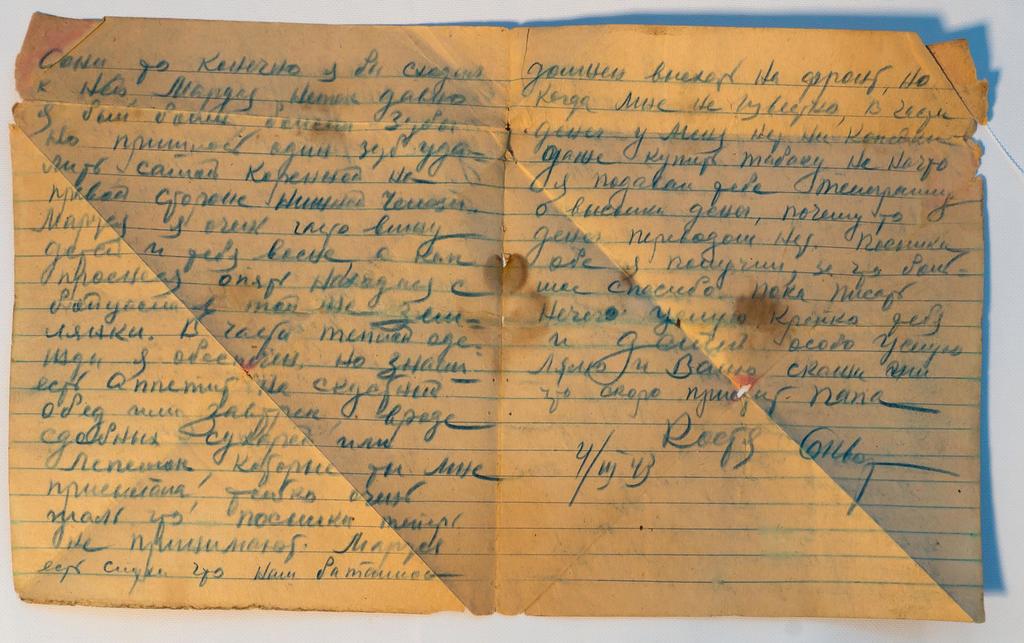 Сони то конечно я бы сходил
к ней. Маруся, неток давно
я был болен болели зубы
но пришлось один зуб уда-
лить самой коренной на
правой стороне нижней челюсти.
Маруся я очень часто вижу
детей и тебя во сне, а как
проснеся опять нахожуся с
в той же зем-
лянки. В части теплой оде-
жды я обеспечен, но знаеш
есть аппетит на скусный
обед или завтрак, вроде
сдобных сухарей или
лепешок, которые ты мне
присылала, только очень
жаль что посылки теперь
не принимают. Маруся
есть слухи что наш баталион
должен выехать на фронт, но
когда мне не известно, в части
денег у меня нет ни копейки
даже купить табаку не начто
я подавал тебе телеграмму
о высылки денег, почему то
денег переводом нет. Посылки
обе я получил, за что боль-
шое спасибо. Пока писать
нечего целую крепко тебя
и детей особо целую
Лялю и Ваню скажи им
что скоро приедит папа
Костя
4/III 43